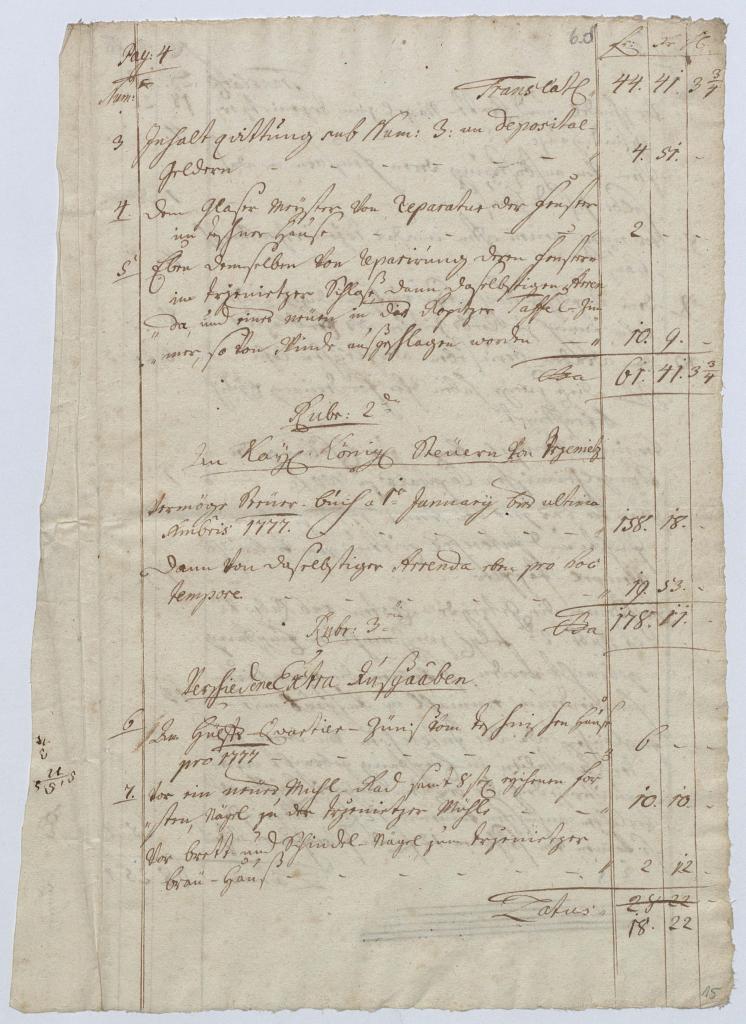 Pag: 4
Num:
Translat 44. 41. 3 3/4
3 Inhalt quittung sub Num: 3: an deposital-
geldern - - - 4. 51. -
4. dem Glaser Meyster von Reparatur der Fenster
im Hause - - - 2 - -
5 Eben demselben von Reparirung deren Fenstern
im trzenietzer Schloß, dann daselbstigen Arren
da, und eines neuen in das Ropitzer Taffel-Zim
mer, so von Winde ausgeschlagen worden - 10. 9. -
61. 41. 3 3/4
Rubr: 2
An Kay König Steuern von Trzenietz
Vermöge Steuer-buch a 1 January bis ultima
Xmbris 1777. 158. 18. -
dann von daselbstiger Arrenda eben pro hoc
tempore - - - 19. 53. -
178. 11.
Rubr: 3
Verschiedene Extra Ausgaaben.
6 Quartier-Zünß vom Hause
pro 1777 - - - 6 - -
7. Vor ein neues Mühl-Rad samt 8
Nägel zu der trzenietzer Mühle - 10. 10. -
Vor brett- und Schindel-Nagel zum trzenietzer
bräu-Hauß - - - 2 12 -
Latus 28 22
18. 22
15